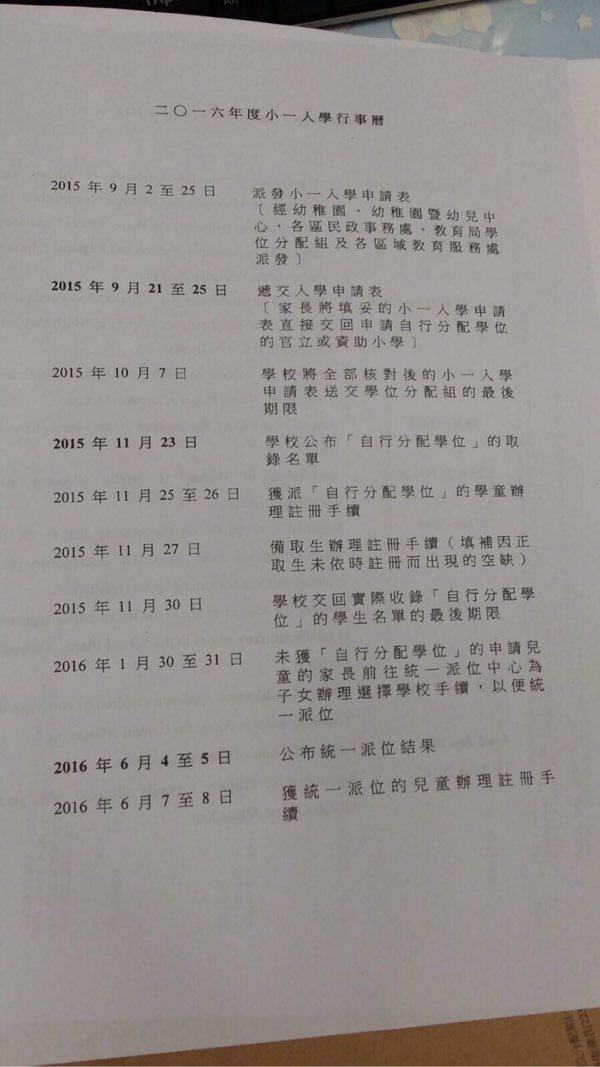 二〇一六年度小一入學行事曆
2015 年 9 月 2 至 25 日 派發小一入學申請表
〔經幼稚園、幼稚園暨幼兒中
心、各區民政事務處、教育局學
位分配組及各區域教育服務處
派發〕
2015 年 9 月 21 至 25 日 遞交入學申請表
〔家長將填妥的小一入學申請
表直接交回申請自行分配學位
的官立或資助小學〕
2015 年 10 月 7 日 學校將全部核對後的小一入學
申請表送交學位分配組的最後
期限
2015 年 11 月 23 日 學校公布「自行分配學位」的取
錄名單
2015 年 11 月 25 至 26 日 獲派「自行分配學位」的學童辦
理註冊手續
2015 年 11 月 27 日 備取生辦理註冊手續（填補因正
取生未依時註冊而出現的空缺）
2015 年 11 月 30 日 學校交回實際收錄「自行分配學
位」的學生名單的最後期限
2016 年 1 月 30 至 31 日 未獲「自行分配學位」的申請兒
童的家長前往統一派位中心為
子女辦理選擇學校手續，以便統
一派位
2016 年 6 月 4 至 5 日 公布統一派位結果
2016 年 6 月 7 至 8 日 獲統一派位的兒童辦理註冊手
續